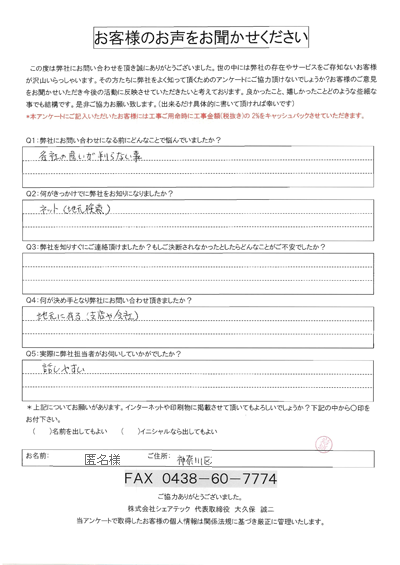 お客様のお声をお聞かせください
この度は弊社にお問い合わせを頂き誠にありがとうございました。世の中には弊社の存在やサービスをご存知ないお客様
が沢山いらっしゃいます。その方たちに弊社をよく知って頂くためのアンケートにご協力頂けないでしょうか?お客様のご意見
をお聞かせいただき今後の活動に反映させていただきたいと考えております。良かったこと、嬉しかったことどのような些細な
事でも結構です。是非ご協力お願い致します。(出来るだけ具体的に書いて頂ければ幸いです)
*本アンケートにご記入いただいたお客様には工事ご用命時に工事金額(税抜き)の2%をキャッシュバックさせていただきます。
Q1:弊社にお問い合わせになる前にどんなことで悩んでいましたか?
各社の違いが判らない事
Q2:何がきっかけでに弊社をお知りになりましたか?
ネット(地元検索)
Q3:弊社を知りすぐにご連絡頂けましたか?もしご決断されなかったとしたらどんなことがご不安でしたか?
Q4:何が決め手となり弊社にお問い合わせ頂きましたか?
地元にある(支店や会社)
Q5:実際に弊社担当者がお伺いしていかがでしたか?
話しやすい
*上記についてお願いがあります。インターネットや印刷物に掲載させて頂いてもよろしいでしょうか?下記の中から〇印を
お付下さい。
( )名前を出してもよい ( )イニシャルなら出してもよい
お名前: 匿名様 ご住所: 神奈川区
FAX 0438-60-7774
ご協力ありがとうございました。
株式会社シェアテック 代表取締役 大久保 誠二
当アンケートで取得したお客様の個人情報は関係法規に基づき厳正に管理いたします。